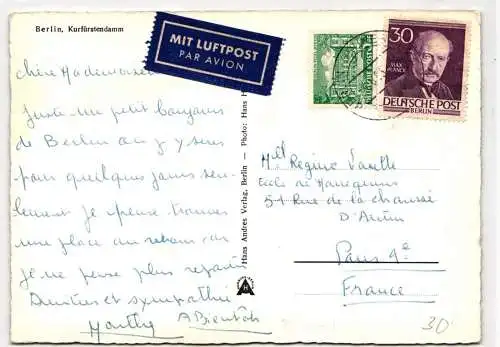 Berlin, Kurfürstendamm
MIT LUFTPOST
PAR AVION
30
MAX
PLANCK
DEUTSCHE POST
BERLIN
Chère Mademoiselle
Juste un petit bonjour
de Berlin où j'y serai
pour quelques jours seu-
lement je pense trouver
une place au retour car
je ne pense plus repartir
Amitiés et sympathie
Marthy
Hans Andres Verlag, Berlin - Photo: Hans
Mlle Régine
Ecole de Mannequins
51 Rue de la chaussé
D'Antin
Paris 9e
France
30